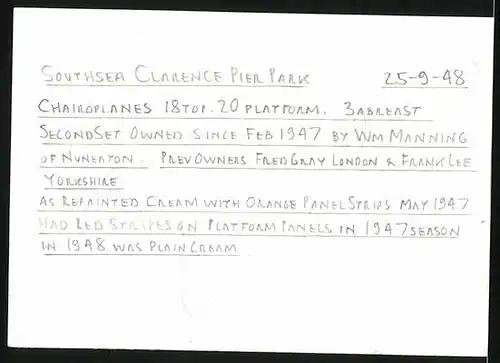 SOUTHSEA CLARENCE PIER PARK 25-9-48
CHAIROPLANES 18 TOP. 20 PLATFORM. 3 ABREAST
SECOND SET OWNED SINCE FEB 1947 BY WM MANNING
OF NUNEATON. PREV OWNERS FRED GRAY LONDON & FRANK LEE
YORKSHIRE
AS REPAINTED CREAM WITH ORANGE PANEL STRIPS MAY 1947
HAD RED STRIPES ON PLATFORM PANELS IN 1947 SEASON
IN 1948 WAS PLAIN CREAM